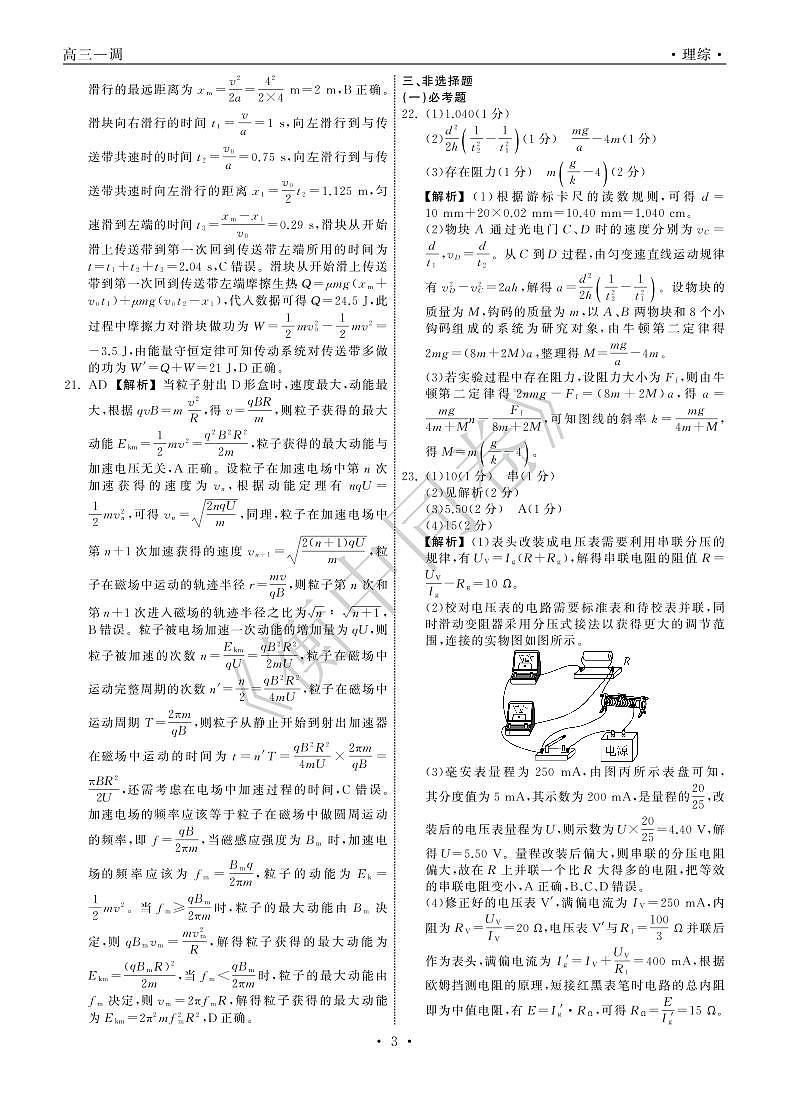 高三一调
·理综·
滑行的最远距离为 xₘ=v²/2a=4²/(2×4) m=2 m,B正确。
滑块向右滑行的时间 t₁=v/a=1 s,向左滑行到与传
送带共速时的时间 t₂=v₀/a=0.75 s,向左滑行到与传
送带共速时向左滑行的距离 x₁=v₀/2 t₂=1.125 m,匀
速滑到左端的时间 t₃=(xₘ-x₁)/v₀=0.29 s,滑块从开始
滑上传送带到第一次回到传送带左端所用的时间为
t=t₁+t₂+t₃=2.04 s,C错误。滑块从开始滑上传送
带到第一次回到传送带左端摩擦生热 Q=μmg(xₘ+
v₀t₁)+μmg(v₀t₂-x₁),代入数据可得 Q=24.5 J,此
过程中摩擦力对滑块做功为 W=1/2 mv₀²-1/2 mv²=
-3.5 J,由能量守恒定律可知传动系统对传送带多做
的功为 W′=Q+W=21 J,D正确。
21. AD 【解析】当粒子射出 D 形盒时,速度最大,动能最
大,根据 qvB=m v²/R,得 v=qBR/m,则粒子获得的最大
动能 Eₖₘ=1/2 mv²=q²B²R²/2m,粒子获得的最大动能与
加速电压无关,A正确。设粒子在加速电场中第 n 次
加速获得的速度为 vₙ,根据动能定理有 nqU=
1/2 mvₙ²,可得 vₙ=√(2nqU/m),同理,粒子在加速电场中
第 n+1 次加速获得的速度 vₙ₊₁=√(2(n+1)qU/m),粒
子在磁场中运动的轨迹半径 r=mv/qB,则粒子第 n 次和
第 n+1 次进入磁场的轨迹半径之比为√n∶√(n+1),
B错误。粒子被电场加速一次动能的增加量为 qU,则
粒子被加速的次数 n=Eₖₘ/qU=qB²R²/2mU,粒子在磁场中
运动完整周期的次数 n′=n/2=qB²R²/4mU,粒子在磁场中
运动周期 T=2πm/qB,则粒子从静止开始到射出加速器
在磁场中运动的时间为 t=n′T=qB²R²/4mU×2πm/qB=
πBR²/2U,还需考虑在电场中加速过程的时间,C错误。
加速电场的频率应该等于粒子在磁场中做圆周运动
的频率,即 f=qB/2πm,当磁感应强度为 Bₘ 时,加速电
场的频率应该为 fₘ=Bₘq/2πm,粒子的动能为 Eₖ=
1/2 mv²。当 fₘ≥qBₘ/2πm时,粒子的最大动能由 Bₘ 决
定,则 qBₘvₘ=mvₘ²/R,解得粒子获得的最大动能为
Eₖₘ=(qBₘR)²/2m,当 fₘ<qBₘ/2πm时,粒子的最大动能由
fₘ 决定,则 vₘ=2πfₘR,解得粒子获得的最大动能
为 Eₖₘ=2π²mfₘ²R²,D正确。
三、非选择题
(一)必考题
22. (1)1.040(1分)
(2)d²/2h(1/t₂²-1/t₁²)(1分) mg/a-4m(1分)
(3)存在阻力(1分) m(g/k-4)(2分)
【解析】(1)根据游标卡尺的读数规则,可得 d=
10 mm+20×0.02 mm=10.40 mm=1.040 cm。
(2)物块 A 通过光电门 C、D 时的速度分别为 v_C=
d/t₁,v_D=d/t₂。从 C 到 D 过程,由匀变速直线运动规律
有 v_D²-v_C²=2ah,解得 a=d²/2h(1/t₂²-1/t₁²)。设物块的
质量为 M,钩码的质量为 m,以 A、B 两物块和 8 个小
钩码组成的系统为研究对象,由牛顿第二定律得
2mg=(8m+2M)a,整理得 M=mg/a-4m。
(3)若实验过程中存在阻力,设阻力大小为 F_f,则由牛
顿第二定律得 2nmg-F_f=(8m+2M)a,得 a=
mg/(4m+M) n-F_f/(8m+2M),可知图线的斜率 k=mg/(4m+M),
得 M=m(g/k-4)。
23. (1)10(1分) 串(1分)
(2)见解析(2分)
(3)5.50(2分) A(1分)
(4)15(2分)
【解析】(1)表头改装成电压表需要利用串联分压的
规律,有 U_V=I_g(R+R_g),解得串联电阻的阻值 R=
U_V/I_g-R_g=10 Ω。
(2)校对电压表的电路需要标准表和待校表并联,同
时滑动变阻器采用分压式接法以获得更大的调节范
围,连接的实物图如图所示。
R
电源
(3)毫安表量程为 250 mA,由图丙所示表盘可知,
其分度值为 5 mA,其示数为 200 mA,是量程的20/25,改
装后的电压表量程为 U,则示数为 U×20/25=4.40 V,解
得 U=5.50 V。量程改装后偏大,则串联的分压电阻
偏大,故在 R 上并联一个比 R 大得多的电阻,把等效
的串联电阻变小,A正确,B、C、D错误。
(4)修正好的电压表 V′,满偏电流为 I_V=250 mA,内
阻为 R_V=U_V/I_V=20 Ω,电压表 V′与R₁=100/3 Ω 并联后
作为表头,满偏电流为 I_g′=I_V+U_V/R₁=400 mA,根据
欧姆挡测电阻的原理,短接红黑表笔时电路的总内阻
即为中值电阻,有 E=I_g′·R_Ω,可得 R_Ω=E/I_g′=15 Ω。
《衡中同卷》
·3·